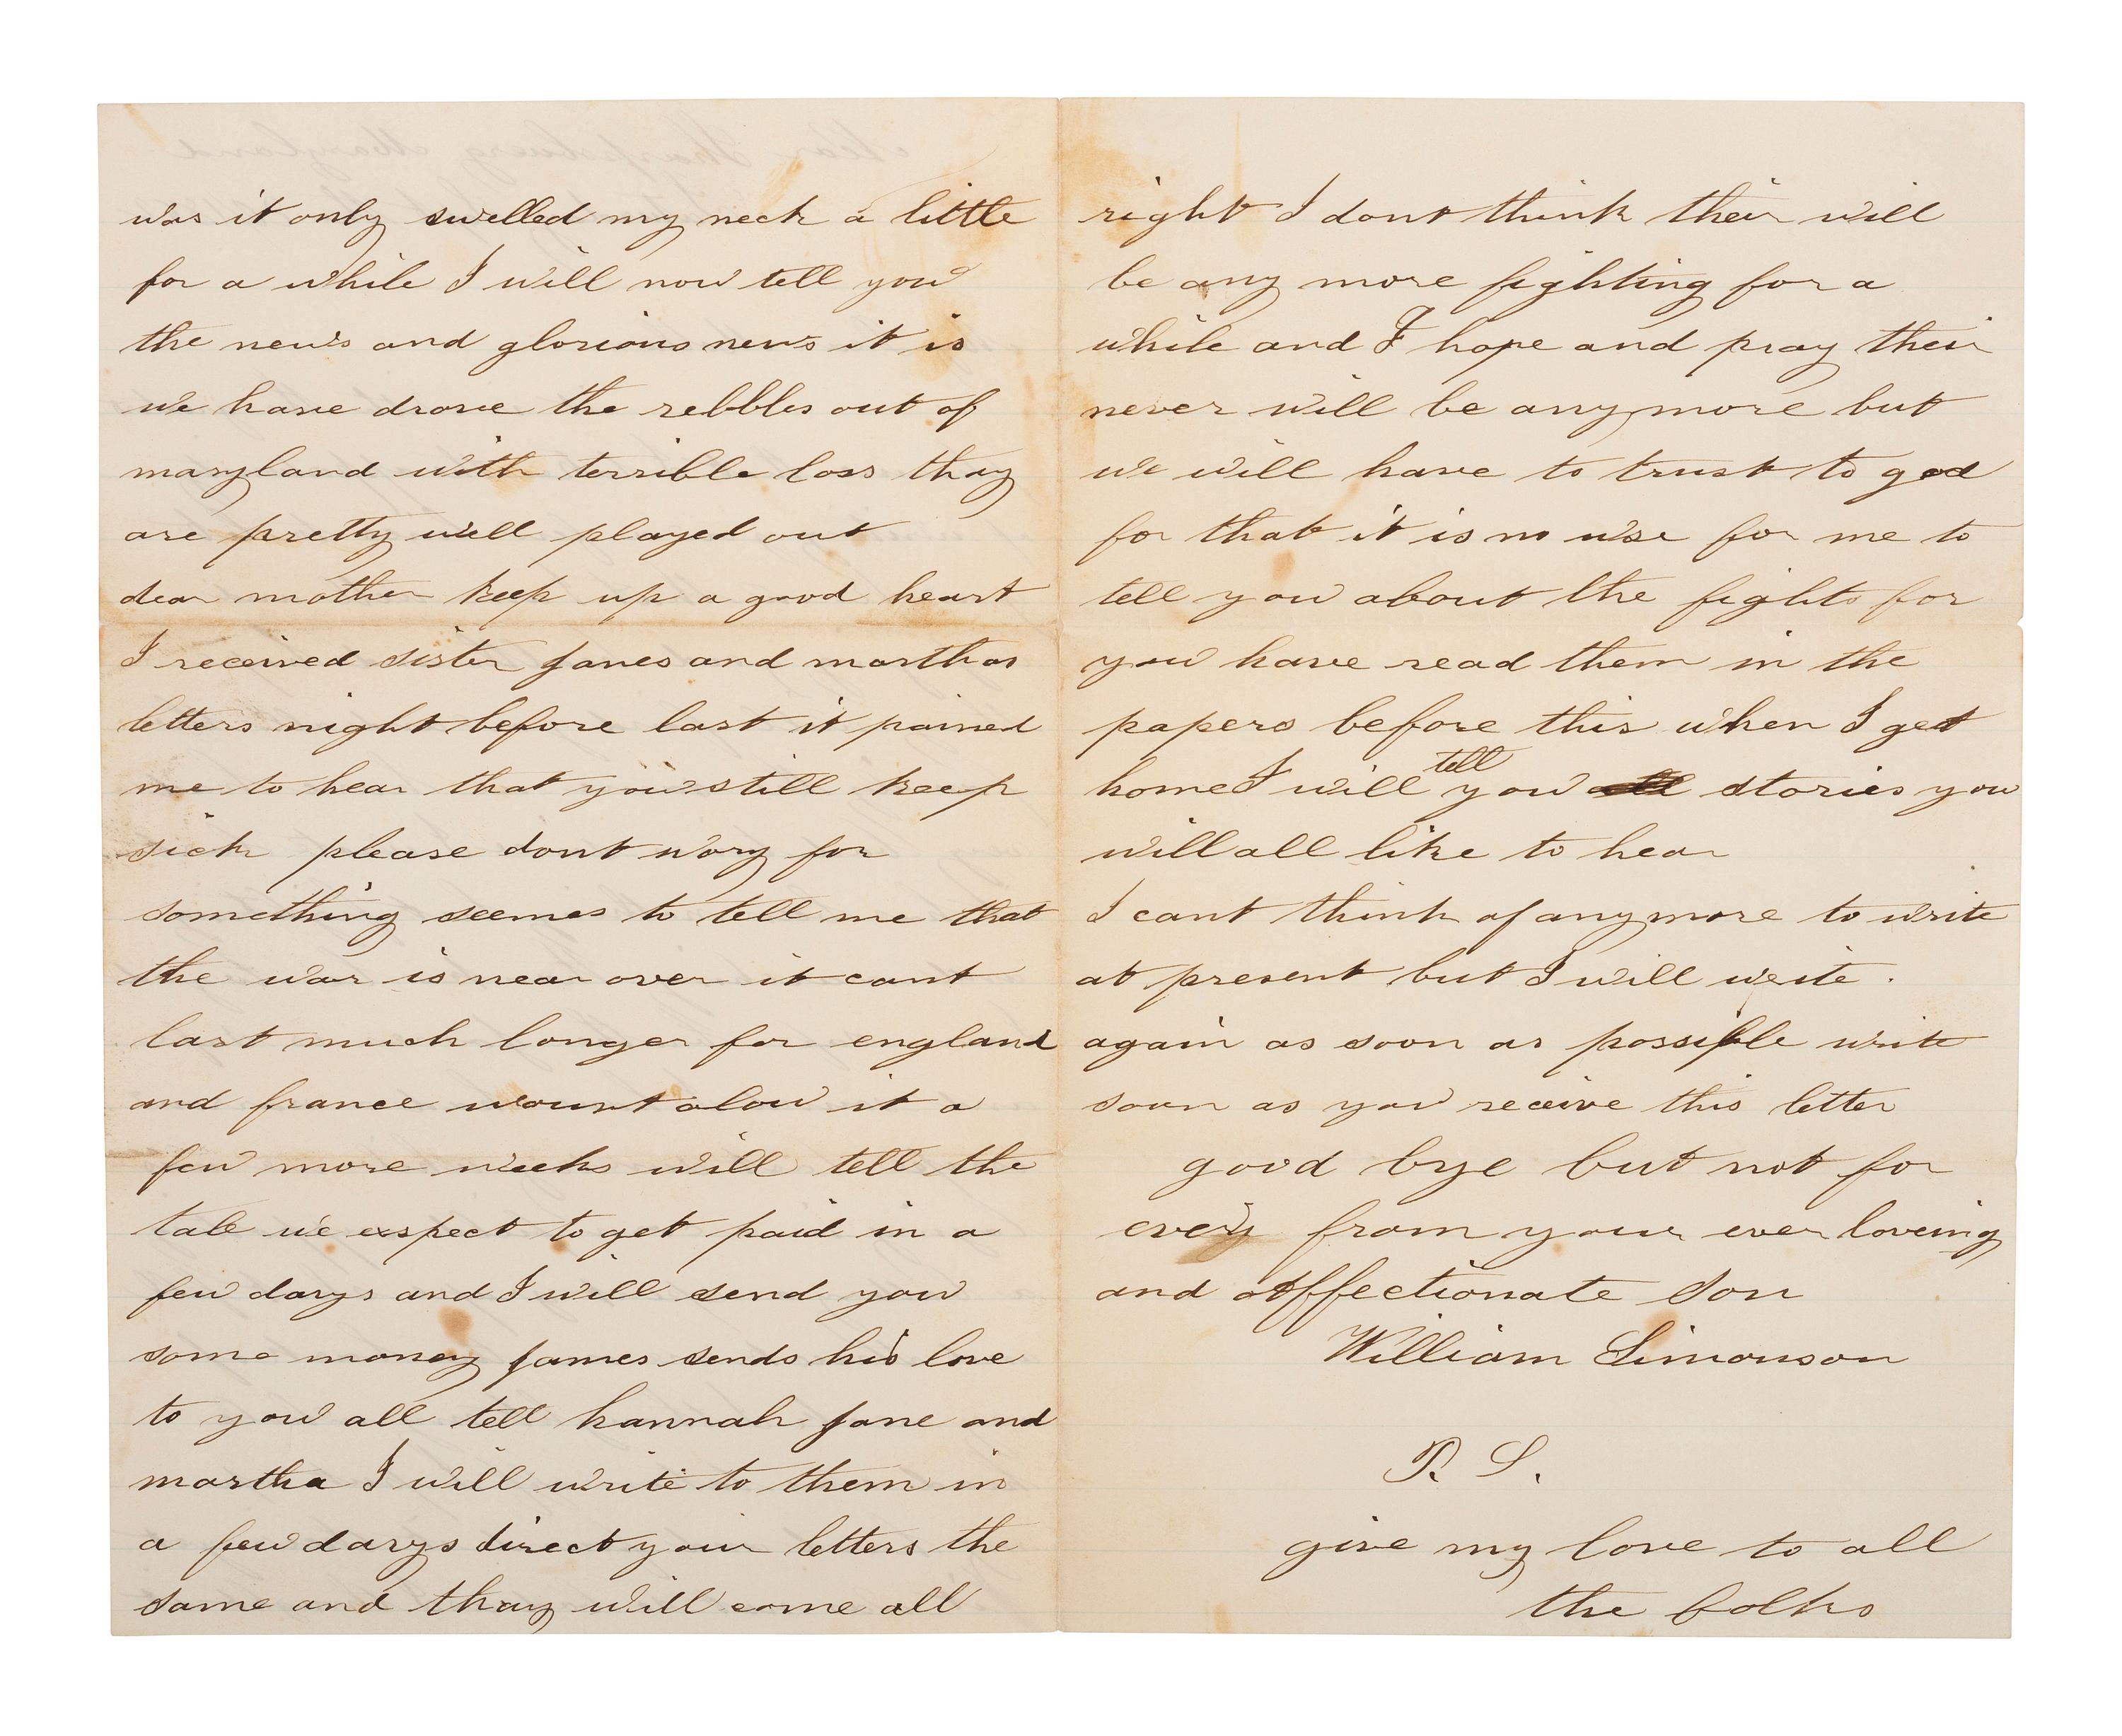 was it only swelled my neck a little
for a while I will now tell you
the news and glorious news it is
we have drove the rebbles out of
maryland with terrible loss thay
are pretty well played out
dear mother keep up a good heart
I received sister janes and marthas
letters night before last it pained
me to hear that you still keep
sick please dont wory for
something seemes to tell me that
the war is near over it cant
last much longer for england
and france wount alow it a
few more weeks will tell the
tale we expect to get paid in a
few days and I will send you
some money james sends his love
to you all tell hannah jane and
martha I will write to them in
a few days direct your letters the
same and thay will come all
right I dont think their will
be any more fighting for a
while and I hope and pray their
never will be any more but
we will have to trust to god
for that it is no use for me to
tell you about the fights for
you have read them in the
papers before this when I get
home I will tell you stories you
will all like to hear
I cant think of any more to write
at present but I will write.
again as soon as possible write
soon as you receive this letter
good bye but not for
every from your ever loveing
and affectionate Son
William Simonson
P. S.
give my love to all
the folks